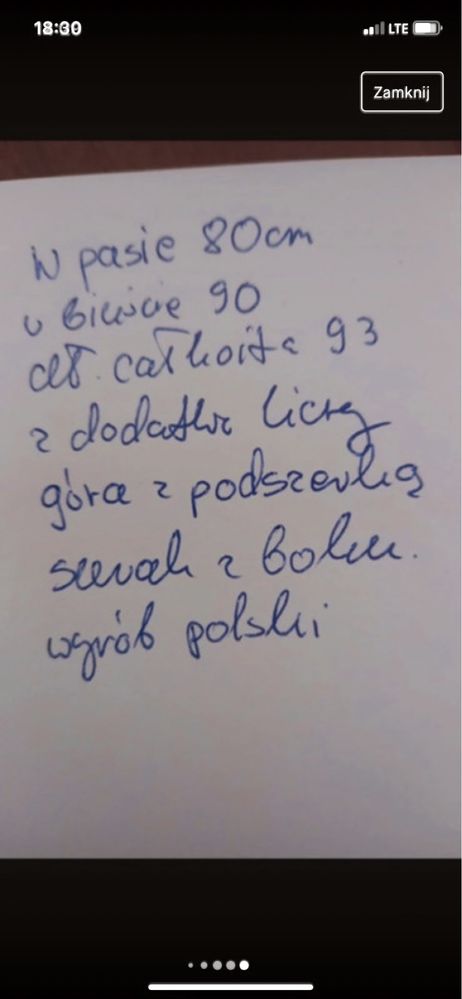 18:30
LTE
Zamknij
W pasie 80cm
w biuście 90
dł. całkoita 93
z dodatku licrą
góra z podszevką
suwak z boku.
wyrób polski